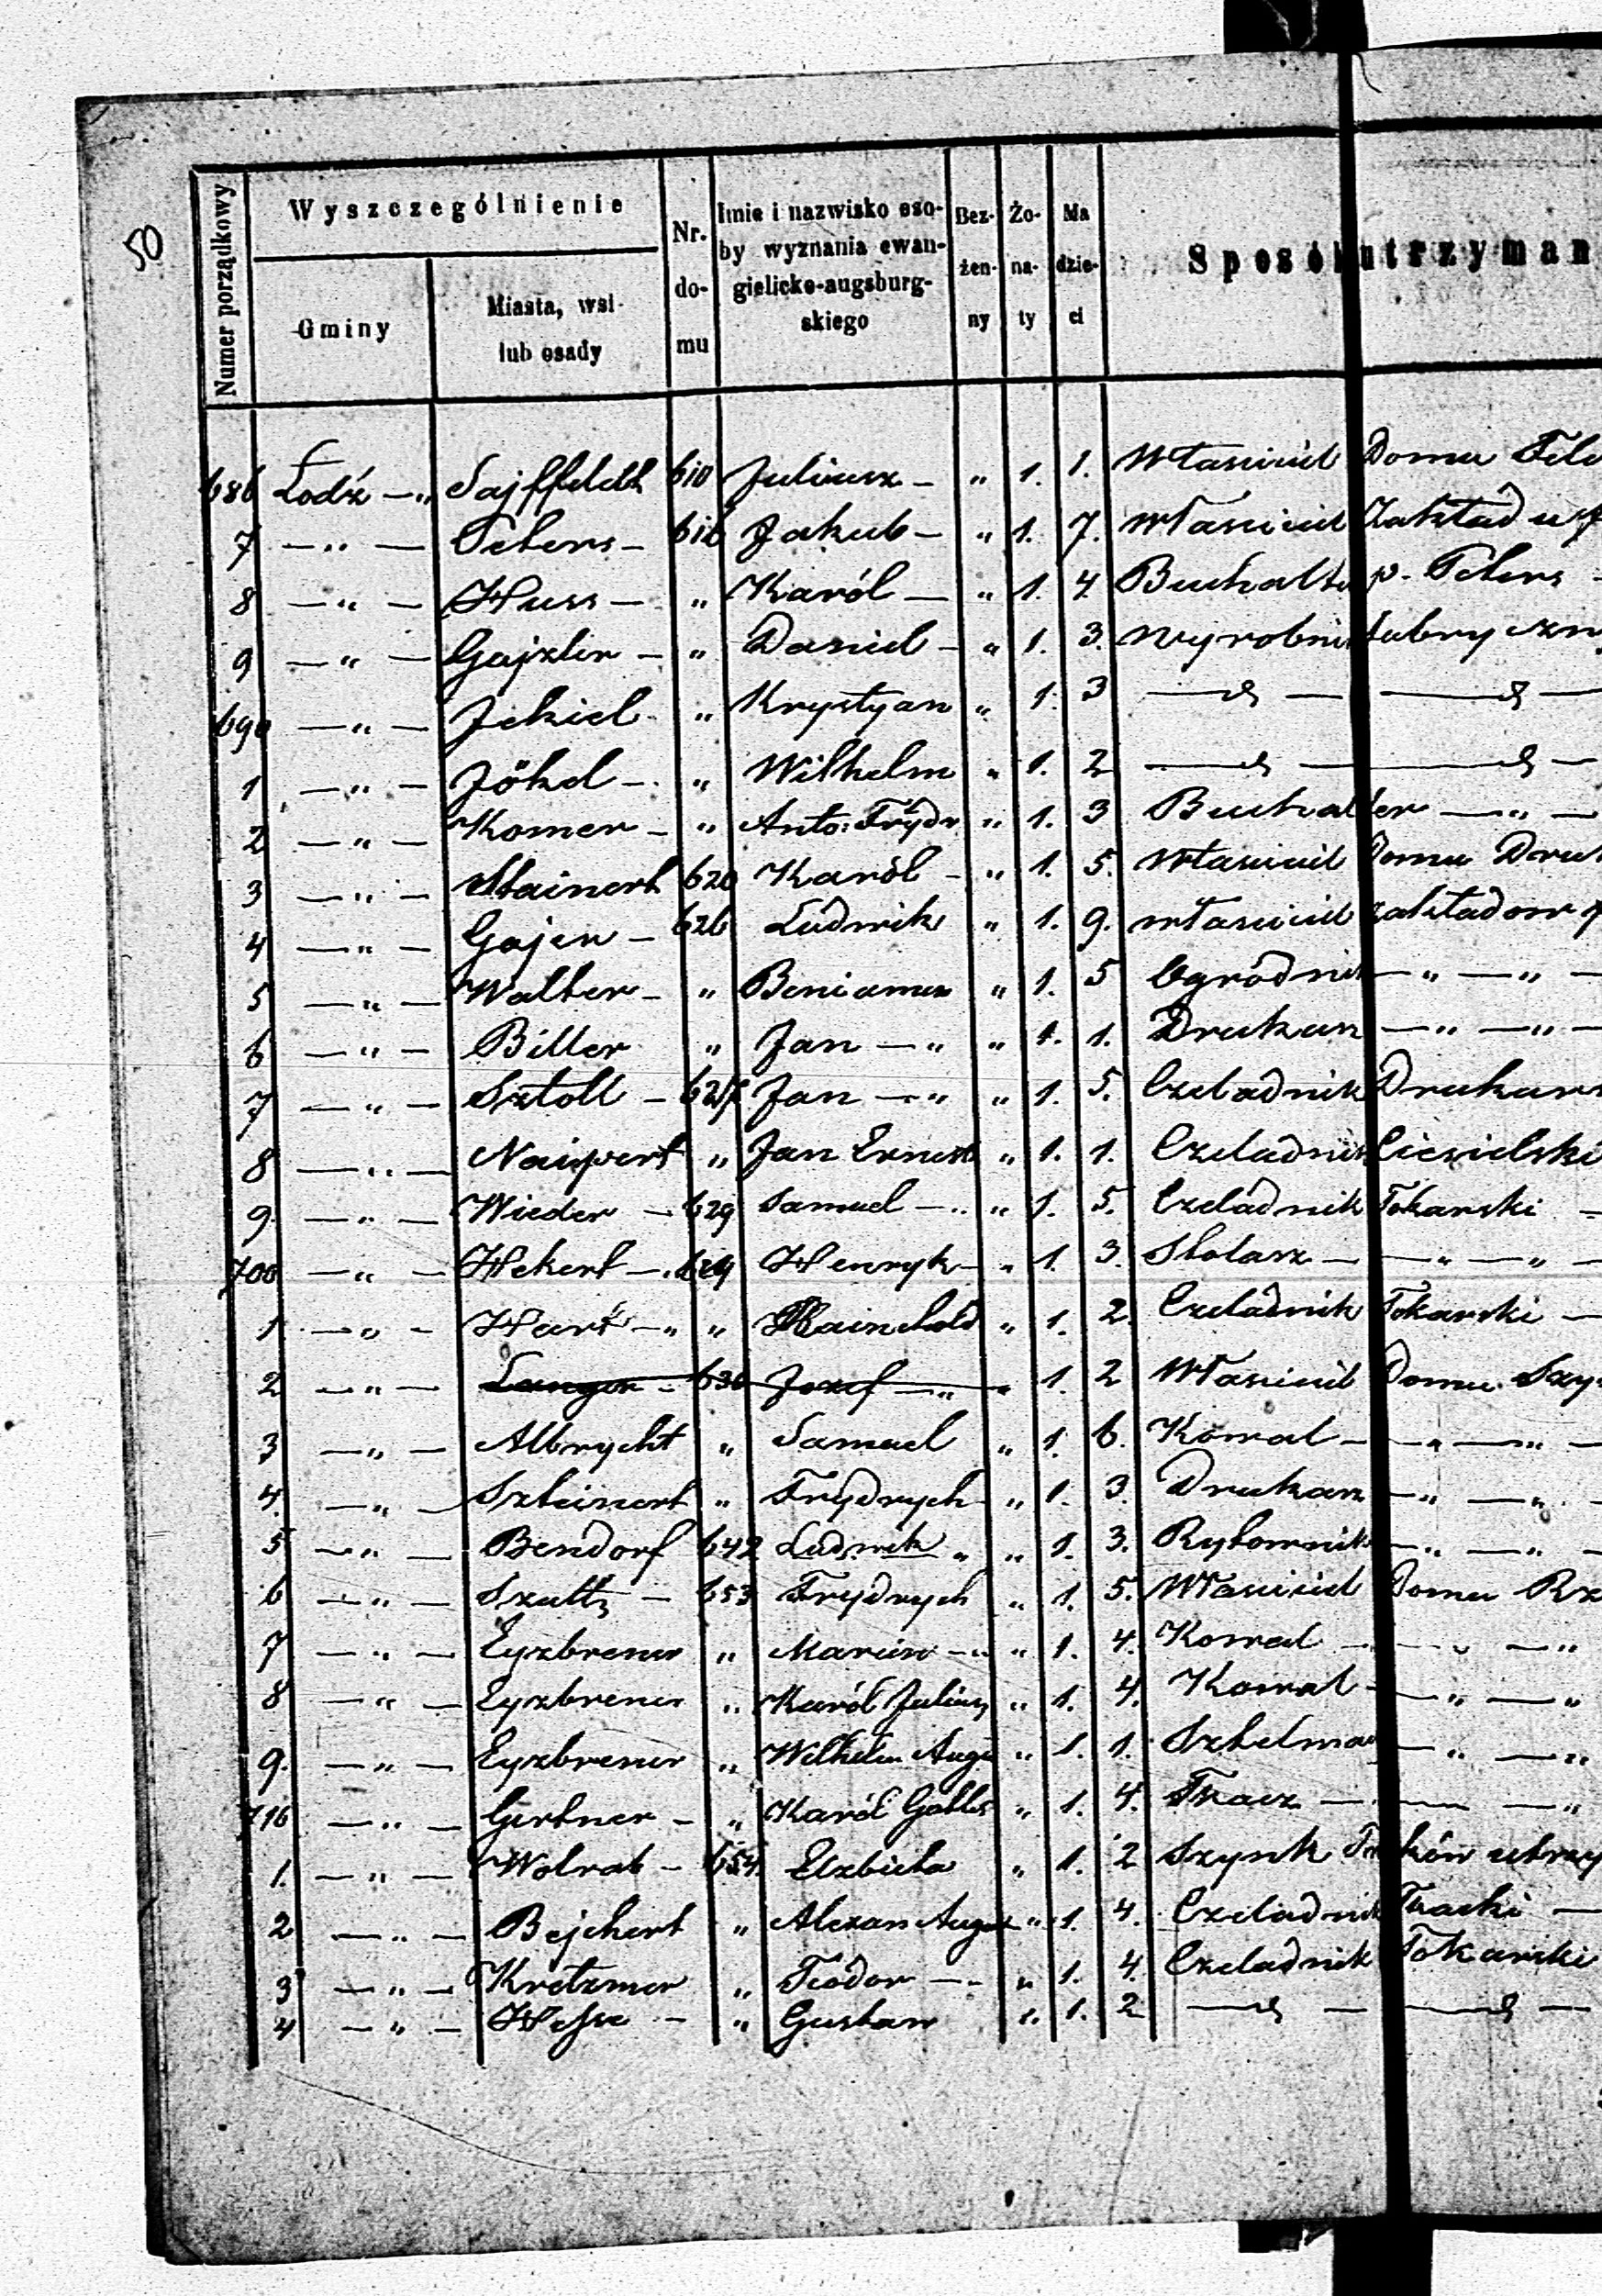 50
Numer porządkowy | Wyszczególnienie | Nr. domu | Imie i nazwisko osoby wyznania ewangielicko-augsburgskiego | Bezżenny | Żonaty | Ma dzieci | Sposób utrzyman
Gminy | Miasta, wsi lub osady
686 Łodź — „ Sajffeldt 610 Juliusz — „ 1. 1. Własciciel Domu
7 — „ — Peters — 616 Jakub — „ 1. 7. Własciciel Zakładu
8 — „ — Huss — „ Karól — „ 1. 4 Buchalter p. Peters —
9 — „ — Gajzler — „ Daniel — „ 1. 3. Wyrobnik fabryczny
690 — „ — Jekiel „ Krystyan „ 1. 3 — „ — — „ —
1 — „ — Jökel — „ Wilhelm „ 1. 2 — „ — — „ —
2 — „ — Komer — „ Anto: Frydr „ 1. 3 Buchalter — „ —
3 — „ — Stainert 620 Karól — „ 1. 5. Własciciel Domu Druk
4 — „ — Gajer — 626 Ludwik „ 1. 9. Własciciel zakładow
5 — „ — Walter — „ Beniamin „ 1. 5 Ogrodnik — „ — „ —
6 — „ — Biller „ Jan — „ „ 1. 1. Drukarz — „ — „ —
7 — „ — Sztoll — Jan — „ „ 1. 5. Czeladnik Drukars
8 — „ — Naippert „ Jan Ernest „ 1. 1. Czeladnik Ciesielski
9. — „ — Wieder — 629 Samuel — „ „ 1. 5. Czeladnik Tokarski —
700 — „ — Hekert — 629 Henryk — „ 1. 3. Stolarz — — „ — „ —
1 — „ — — „ „ Rainchold „ 1. 2. Czeladnik Tokarski —
2 — „ — Langer — 630 Jozef — „ „ 1. 2 Własciciel Domu Szy
3 — „ — Albrycht „ Samuel „ 1. 6. Kowal — — „ — „ —
4. — „ — Szteinert „ Frydrych „ 1. 3. Drukarz — „ — „ —
5 — „ — Bendorf 642 Ludwik „ „ 1. 3. Rytownik — „ — „ —
6 — „ — Szultz — 653 Frydrych „ 1. 5. Własciciel Domu Rz
7 — „ — Eyzbrener „ Marcin — „ „ 1. 4. Kowal — — „ — „
8 — „ — Eyzbrener „ Karól Juliusz „ 1. 4. Kowal — — „ — „
9. — „ — Eyzbrener „ Wilhelm Augu „ 1. 1. Sztelmar — „ — „
710 — „ — Gertner — „ Karól Gotlib „ 1. 4. Tkacz — — „ — „
1. — „ — Wolrab — 654. Elzbieta „ 1. 2 Szynk Trunków utrzy
2 — „ — Bejchert „ Alexan August „ 1. 4. Czeladnik Tkacki —
3 — „ — Kretzmer „ Teodor — „ „ 1. 4. Czeladnik Tokarski
4 — „ — Hesse — „ Gustaw „ 1. 2 — „ — — „ —